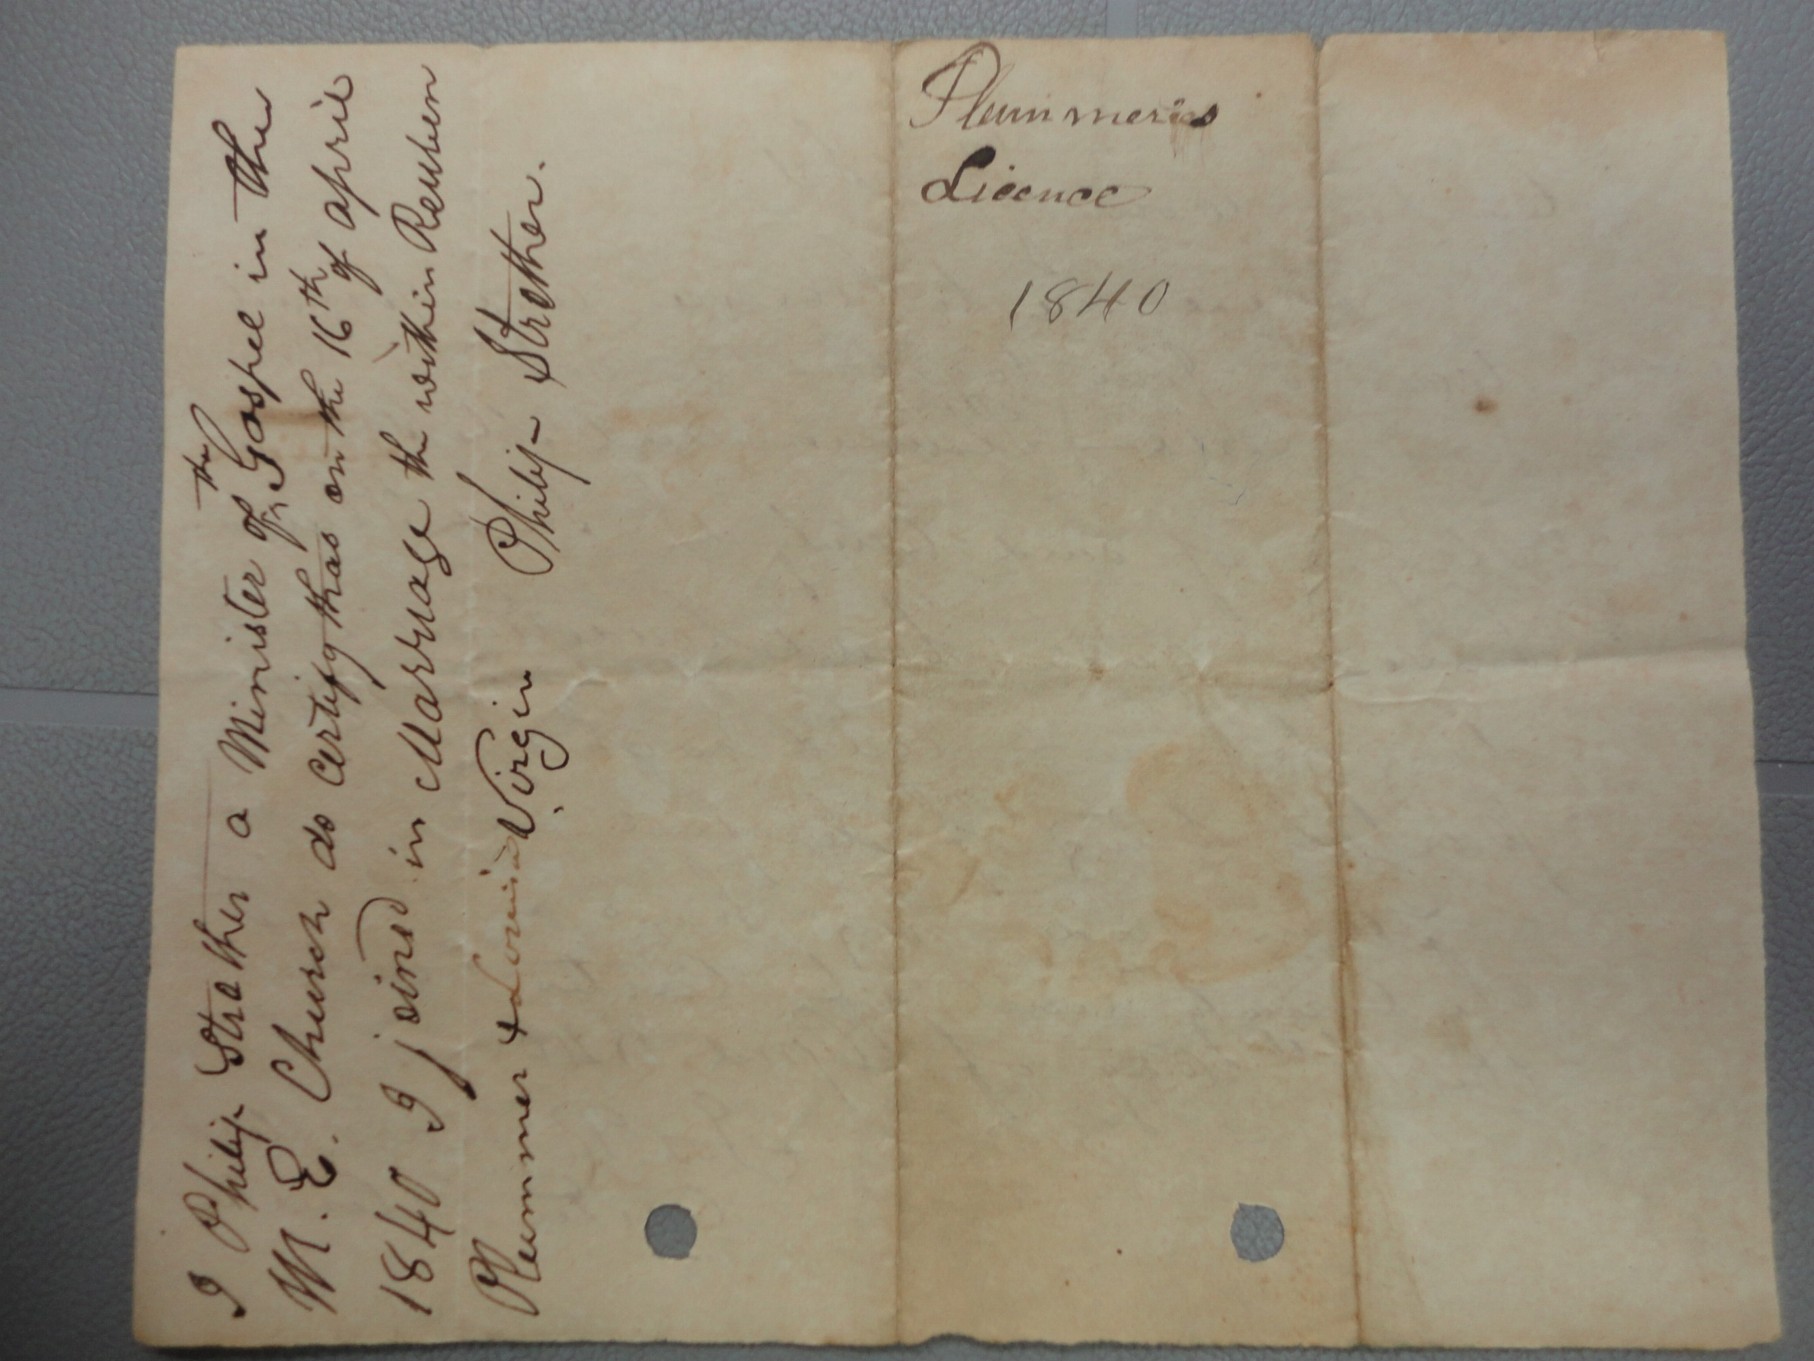 I Philip Strather a Minister of the Gospel in the
M. E. Church do certify that on the 16th of aprie
1840 I joind in Marriage the within Reuben
Plummer & Lovisia Virgin
Philip Strether.
Plummer's
Licence
1840